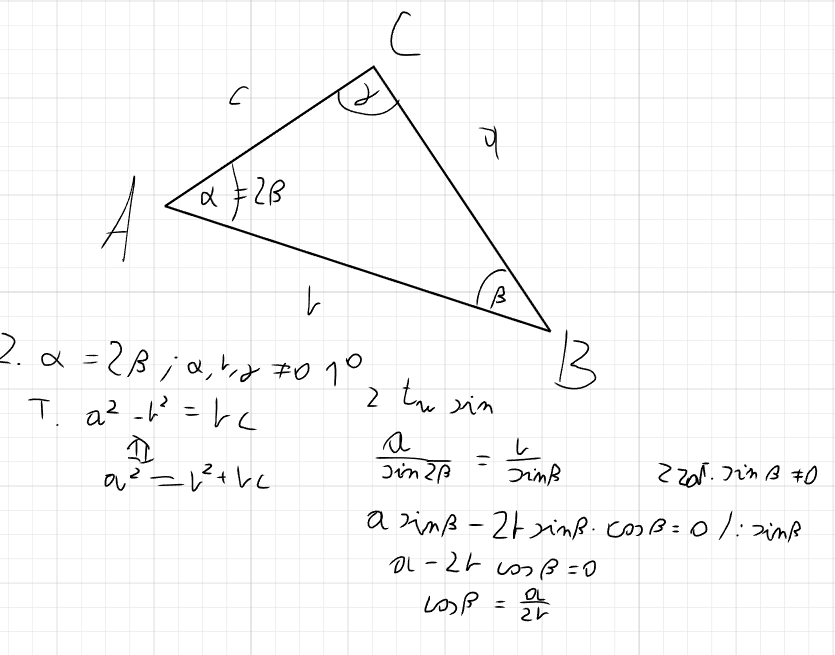 C
c
γ
a
A
α = 2β
b
β
B
2. α = 2β ; α, β, γ ≠ 0 1°
T. a² - b² = bc
⇕
a² = b² + bc
z tw sin
a/sin2β = b/sinβ
z zał. sin β ≠ 0
a sinβ - 2b sinβ · cos β = 0 /: sinβ
a - 2b cos β = 0
cos β = a/2b